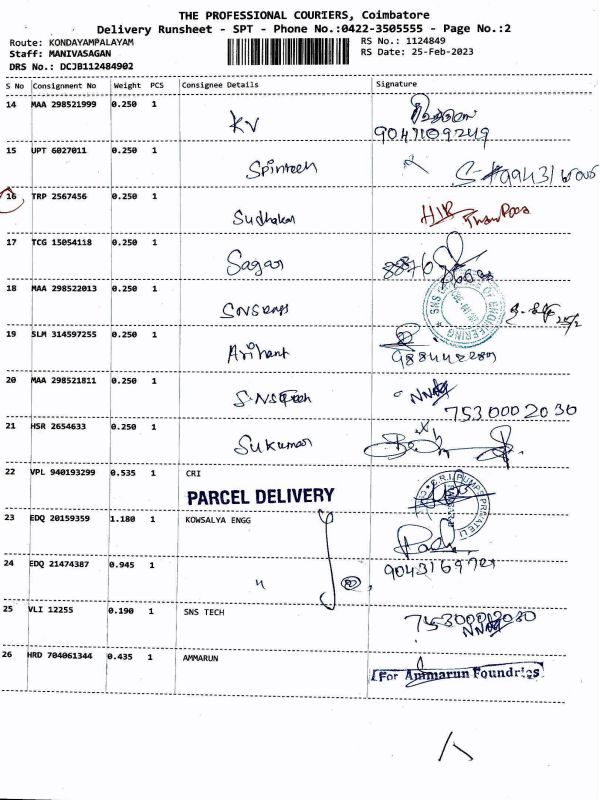 THE PROFESSIONAL COURIERS, Coimbatore
Delivery Runsheet - SPT - Phone No.:0422-3505555 - Page No.:2
Route: KONDAYAMPALAYAM RS No.: 1124849
Staff: MANIVASAGAN RS Date: 25-Feb-2023
DRS No.: DCJB112484902
S No Consignment No Weight PCS Consignee Details Signature
14 MAA 298521999 0.250 1 KV
9047109249
15 UPT 6027011 0.250 1 Spintech
16 TRP 2567456 0.250 1 Sudhakar
17 TCG 15054118 0.250 1 Sagar
18 MAA 298522013 0.250 1
19 SLM 314597255 0.250 1 Arihant
20 MAA 298521811 0.250 1 SNS Tech
7530002030
21 HSR 2654633 0.250 1 Sukumar
22 VPL 940193299 0.535 1 CRI
PARCEL DELIVERY
23 EDQ 20159359 1.180 1 KOWSALYA ENGG
24 EDQ 21474387 0.945 1 "
25 VLI 12255 0.190 1 SNS TECH
26 HRD 704061344 0.435 1 AMMARUN
For Ammarun Foundries